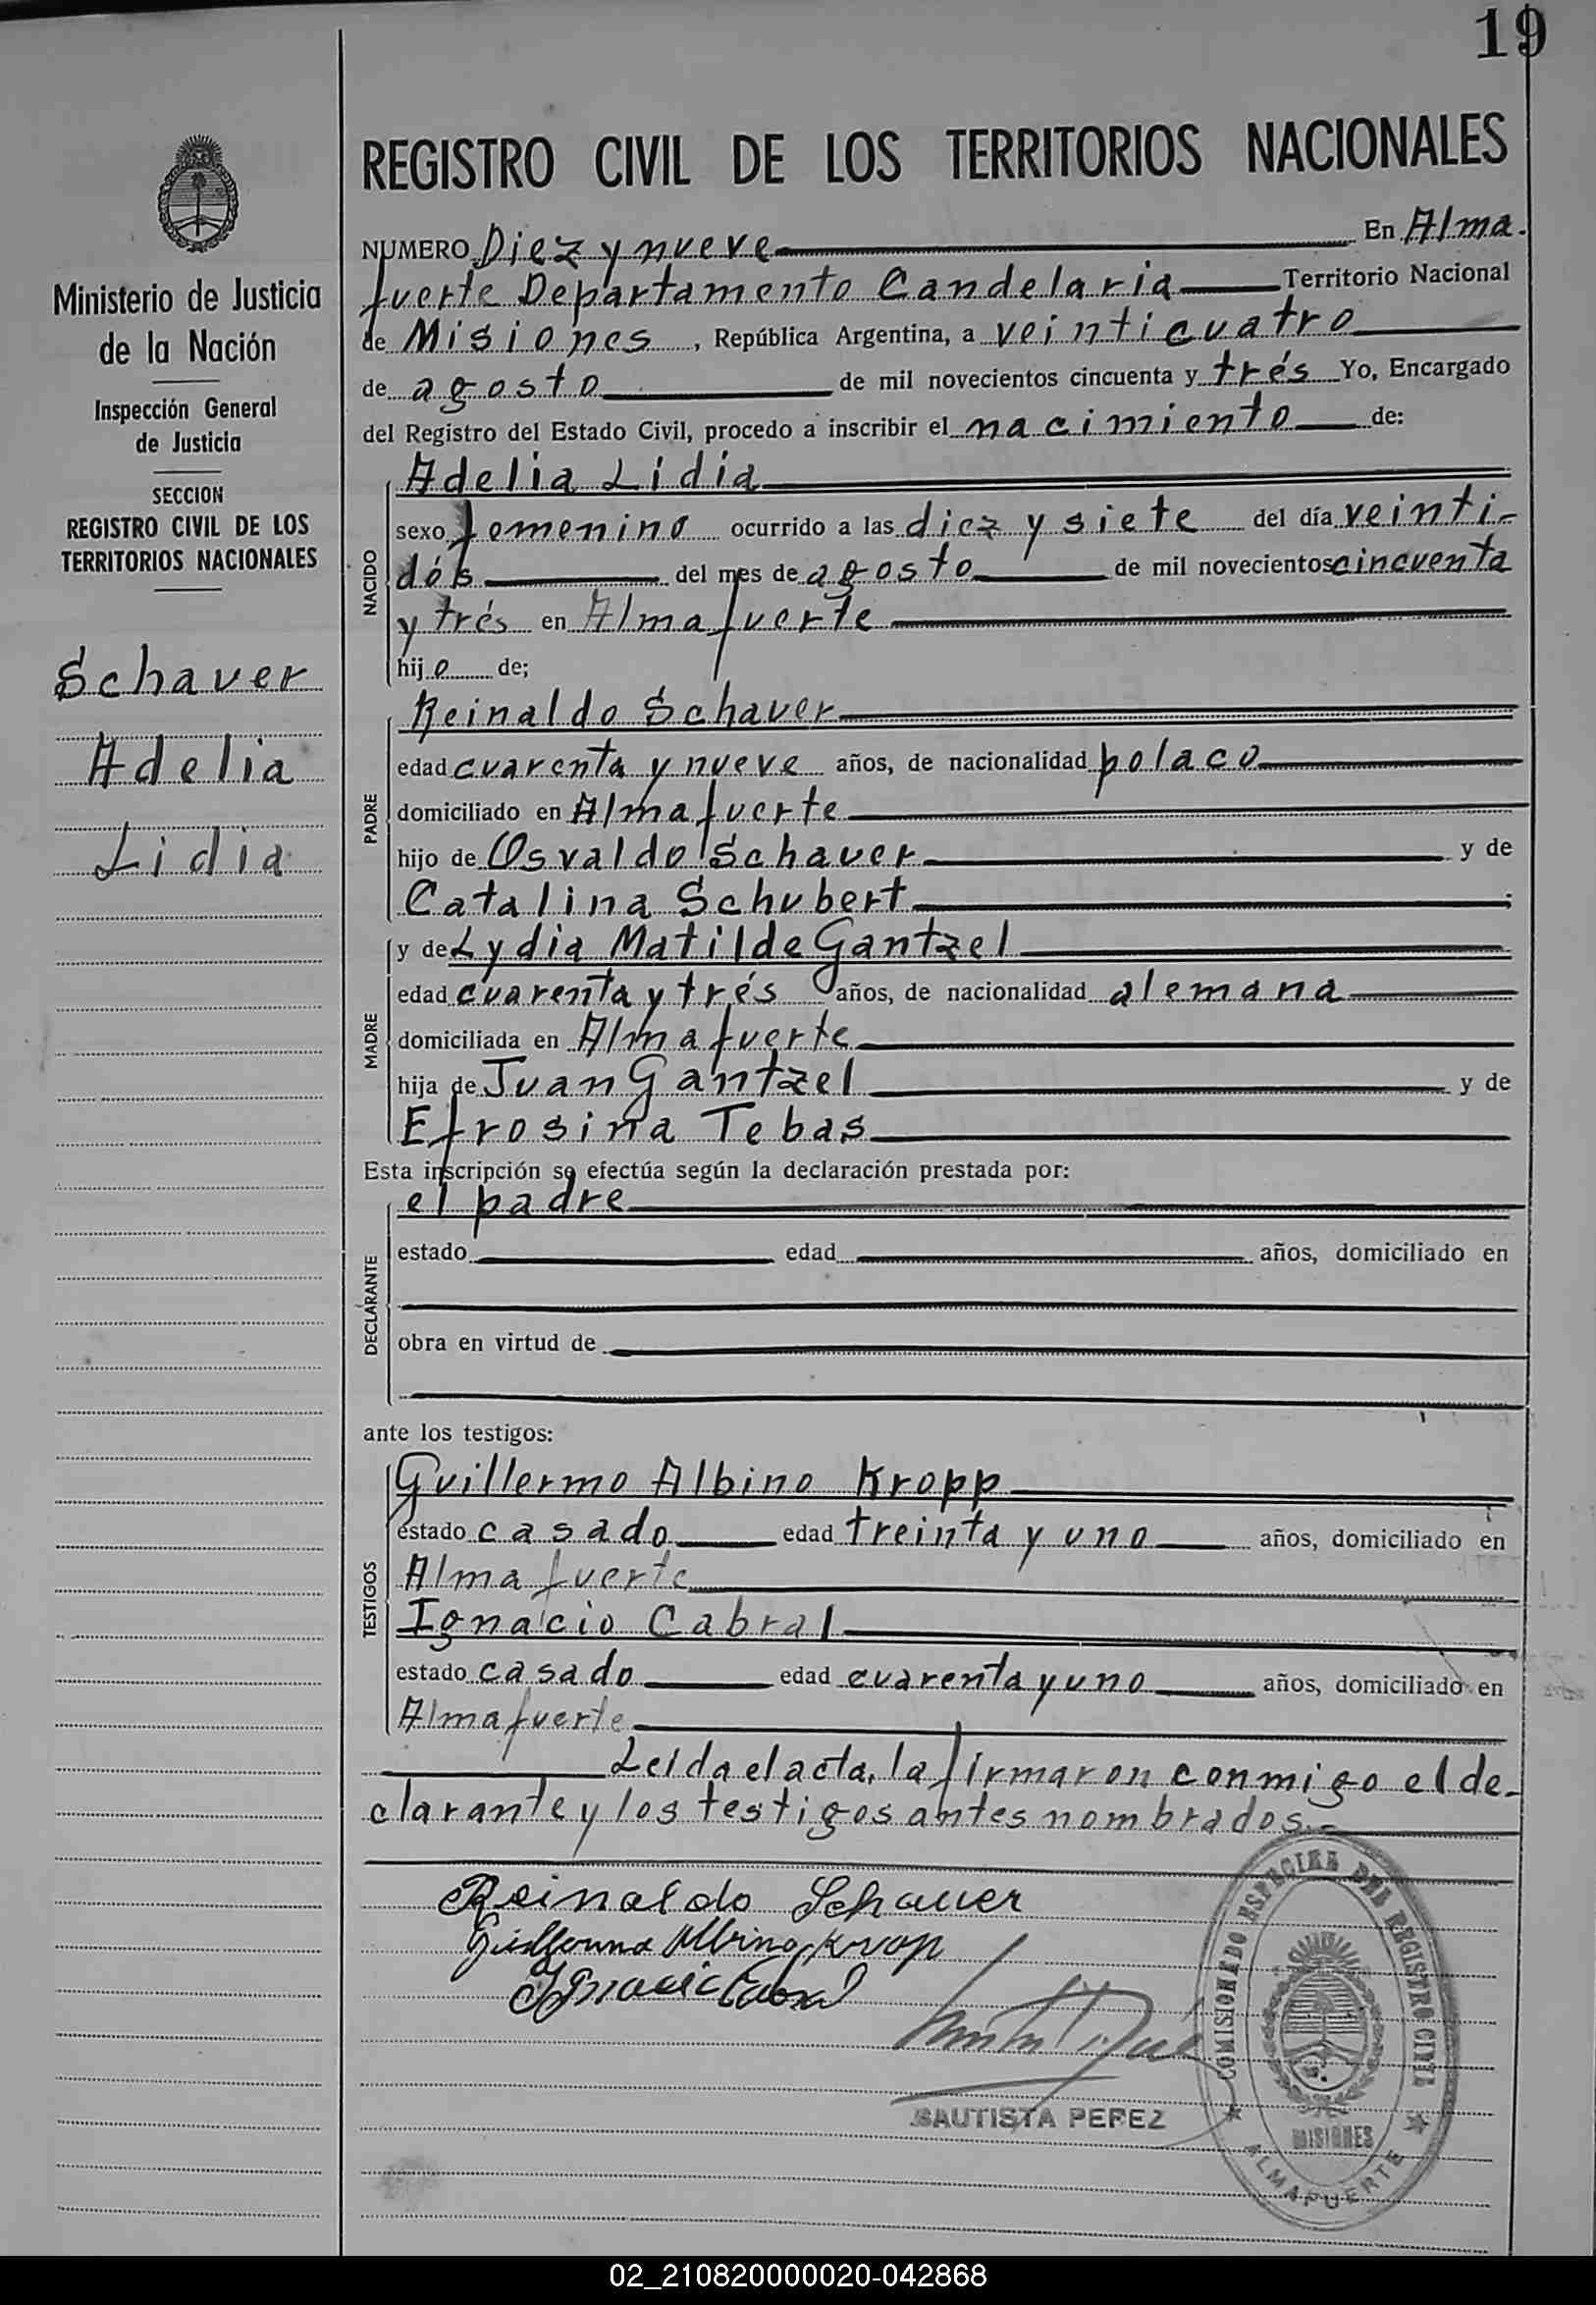 19
Ministerio de Justicia
de la Nación
Inspección General
de Justicia
SECCION
REGISTRO CIVIL DE LOS
TERRITORIOS NACIONALES
Schauer
Adelia
Lidia
REGISTRO CIVIL DE LOS TERRITORIOS NACIONALES
NUMERO Diez y nueve En Alma.
fuerte Departamento Candelaria Territorio Nacional
de Misiones, República Argentina, a veinticuatro
de agosto de mil novecientos cincuenta y trés Yo, Encargado
del Registro del Estado Civil, procedo a inscribir el nacimiento de:
NACIDO
Adelia Lidia
sexo femenino ocurrido a las diez y siete del día veinti-
dós del mes de agosto de mil novecientos cincuenta
y trés en Almafuerte
hijo de;
PADRE
Reinaldo Schauer
edad cuarenta y nueve años, de nacionalidad polaco
domiciliado en Almafuerte
hijo de Osvaldo Schauer y de
Catalina Schubert ;
MADRE
y de Lydia Matilde Gantzel
edad cuarenta y trés años, de nacionalidad alemana
domiciliada en Almafuerte
hija de Juan Gantzel y de
Efrosina Tebas
Esta inscripción se efectúa según la declaración prestada por:
DECLARANTE
el padre
estado edad años, domiciliado en
obra en virtud de
ante los testigos:
TESTIGOS
Guillermo Albino Kropp
estado casado edad treinta y uno años, domiciliado en
Almafuerte
Ignacio Cabral
estado casado edad cuarenta y uno años, domiciliado en
Almafuerte
Leida el acta, la firmaron conmigo el de-
clarante y los testigos antes nombrados.-
Reinaldo Schauer
Guillermo Albino Krop
Ignacio Cabral
BAUTISTA PEREZ
COMISIONADO ESPECIAL DEL REGISTRO CIVIL
MISIONES
ALMAFUERTE
02_210820000020-042868